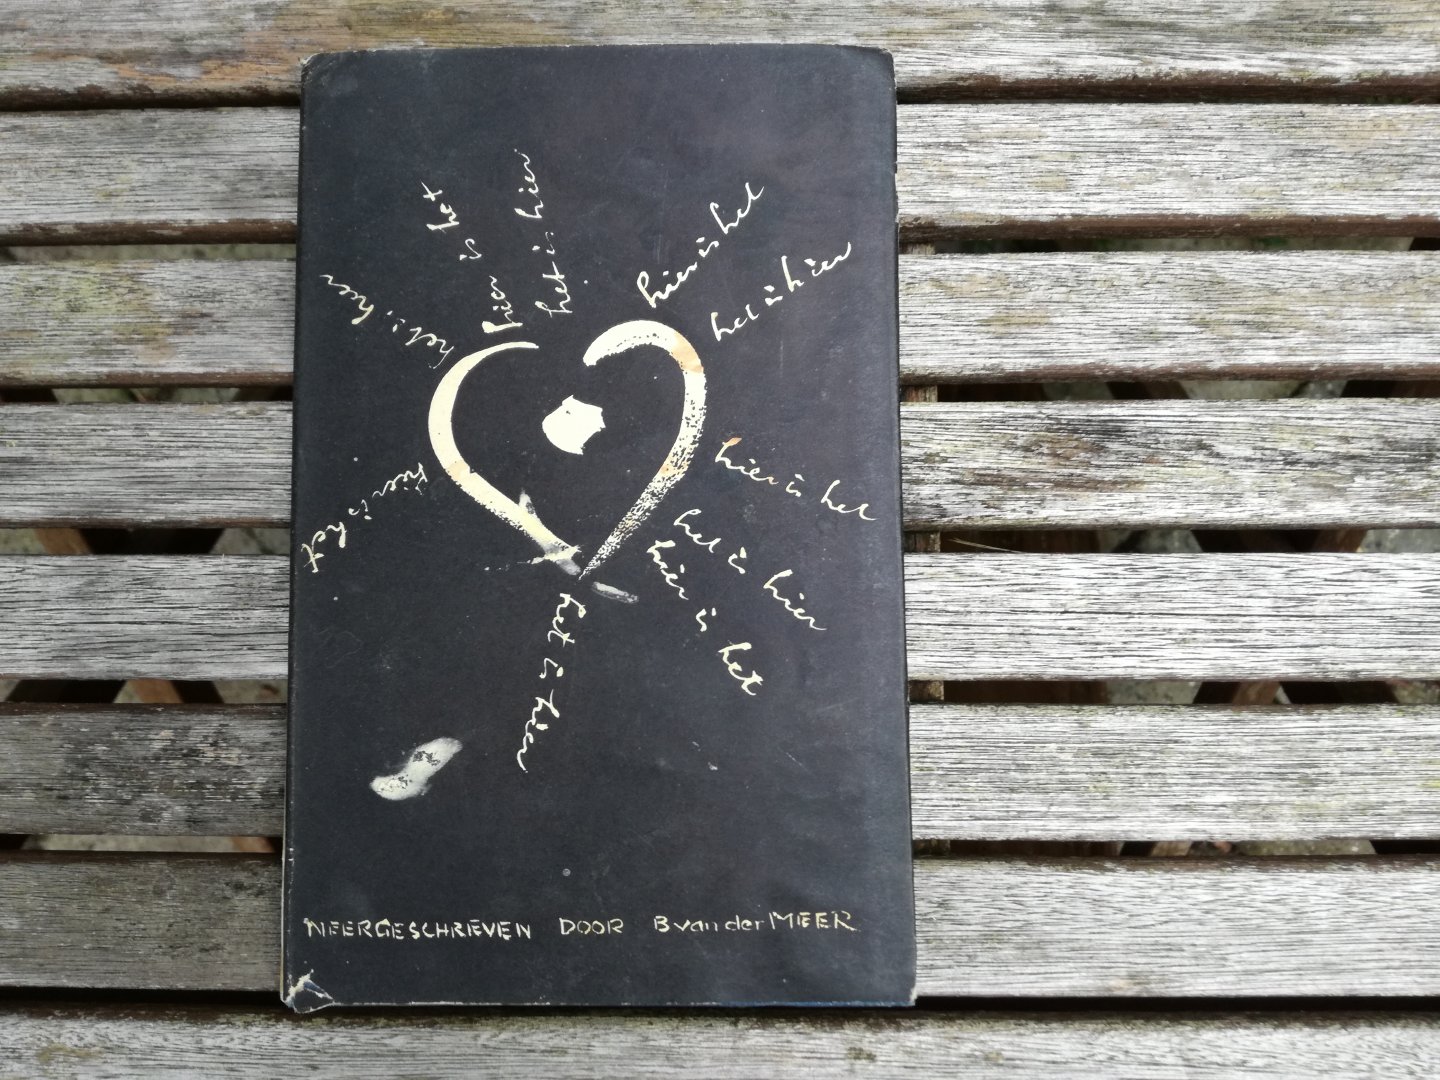 hier is het
het is hier
hier is het
het is hier
het is hier
hier is het
hier is het
het is hier
hier is het
het is hier
NEERGESCHREVEN DOOR B van der MEER